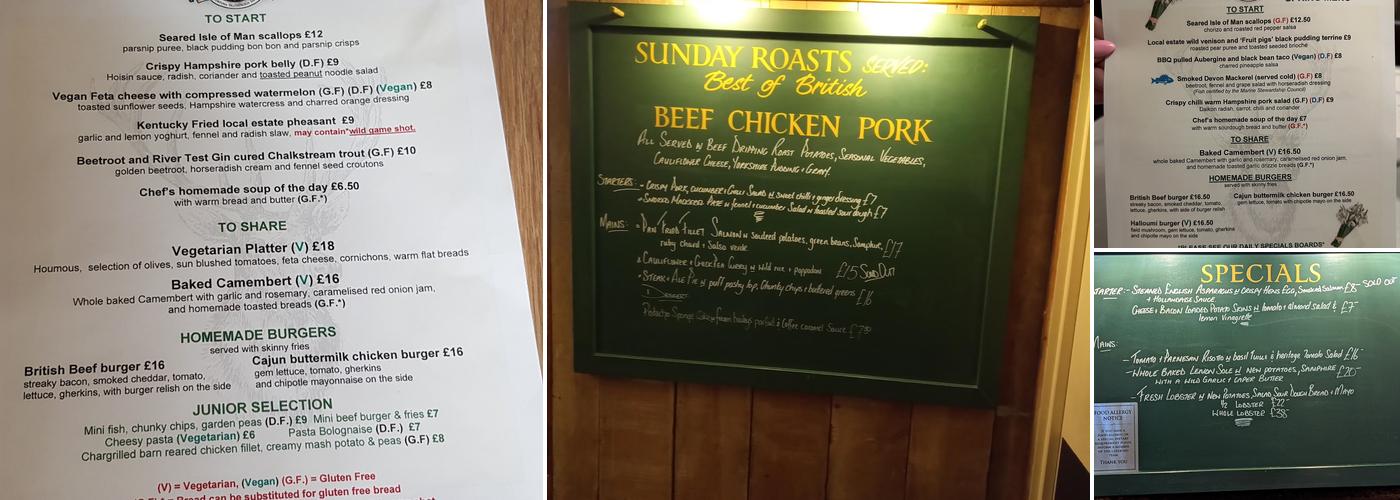 TO START
Seared Isle of Man scallops £12
parsnip puree, black pudding bon bon and parsnip crisps
Crispy Hampshire pork belly (D.F) £9
Hoisin sauce, radish, coriander and toasted peanut noodle salad
Vegan Feta cheese with compressed watermelon (G.F) (D.F) (Vegan) £8
toasted sunflower seeds, Hampshire watercress and charred orange dressing
Kentucky Fried local estate pheasant £9
garlic and lemon yoghurt, fennel and radish slaw, may contain*wild game shot.
Beetroot and River Test Gin cured Chalkstream trout (G.F) £10
golden beetroot, horseradish cream and fennel seed croutons
Chef's homemade soup of the day £6.50
with warm bread and butter (G.F.*)
TO SHARE
Vegetarian Platter (V) £18
Houmous, selection of olives, sun blushed tomatoes, feta cheese, cornichons, warm flat breads
Baked Camembert (V) £16
Whole baked Camembert with garlic and rosemary, caramelised red onion jam,
and homemade toasted breads (G.F.*)
HOMEMADE BURGERS
served with skinny fries
British Beef burger £16
streaky bacon, smoked cheddar, tomato,
lettuce, gherkins, with burger relish on the side
Cajun buttermilk chicken burger £16
gem lettuce, tomato, gherkins
and chipotle mayonnaise on the side
JUNIOR SELECTION
Mini fish, chunky chips, garden peas (D.F.) £9 Mini beef burger & fries £7
Cheesy pasta (Vegetarian) £6 Pasta Bolognaise (D.F.) £7
Chargrilled barn reared chicken fillet, creamy mash potato & peas (G.F) £8
(V) = Vegetarian, (Vegan) (G.F.) = Gluten Free
= Bread can be substituted for gluten free bread
SUNDAY ROASTS SERVED:
Best of British
BEEF CHICKEN PORK
ALL SERVED W BEEF DRIPPING ROAST POTATOES, SEASONAL VEGETABLES,
CAULIFLOWER CHEESE, YORKSHIRE PUDDING + GRAVY.
STARTERS: - CRISPY PORK, CUCUMBER + CHILLI SALAD W sweet chilli + ginger dressing £7
- SMOKED MACKEREL PATE W fennel + cucumber Salad W toasted sour dough £7
MAINS: - PAN FRIED FILLET SALMON W sauteed potatoes, green beans, Samphire, £17
ruby chard + Salsa verde
CAULIFLOWER + CHICKPEA CURRY W wild rice + poppadom £15 SOLD OUT
- STEAK + ALE PIE W puff pastry top, Chunky chips + buttered greens £16
DESSERT
Pistachio Sponge frozen parfait & Coffee caramel Sauce £7
TO START
Seared Isle of Man scallops (G.F) £12.50
chorizo and roasted red pepper salsa
Local estate wild venison and 'Fruit pigs' black pudding terrine £9
roasted pear puree and toasted seeded brioche
BBQ pulled Aubergine and black bean taco (Vegan) (D.F) £8
charred pineapple salsa
Smoked Devon Mackerel (served cold) (G.F) £8
beetroot, fennel and grape salad with horseradish dressing
(Fish certified by the Marine Stewardship Council)
Crispy chilli warm Hampshire pork salad (G.F) (D.F) £9
Daikon radish, carrot, chilli and coriander
Chef's homemade soup of the day £7
with warm sourdough bread and butter (G.F.*)
TO SHARE
Baked Camembert (V) £16.50
whole baked Camembert with garlic and rosemary, caramelised red onion jam,
and homemade toasted garlic drizzle breads (G.F.*)
HOMEMADE BURGERS
served with skinny fries
British Beef burger £16.50
streaky bacon, smoked cheddar, tomato,
lettuce, gherkins, with side of burger relish
Cajun buttermilk chicken burger £16.50
gem lettuce, tomato, gherkins and chipotle mayo on the side
Halloumi burger (V) £16
field mushroom, gem lettuce, tomato, gherkins
and chipotle mayo on the side
*PLEASE SEE OUR DAILY SPECIALS BOARDS*
SPECIALS
STARTER:- STEAMED ENGLISH ASPARAGUS W CRISPY HENS EGG, Smoked Salmon £8- SOLD OUT
+ HOLLANDAISE SAUCE
CHEESE + BACON LOADED POTATO SKINS W tomato + almond salad & £7-
lemon Vinagrette
MAINS:
- TOMATO + PARMESAN RISOTTO W basil tuile & heritage Tomato Salad £16-
- WHOLE BAKED LEMON SOLE W NEW POTATOES, SAMPHIRE £20-
WITH A WILD GARLIC + CAPER BUTTER
- FRESH LOBSTER W NEW POTATOES, SALAD SOUR DOUGH BREAD + MAYO
½ LOBSTER £22-
WHOLE LOBSTER £38-
FOOD ALLERGY
NOTICE
THANK YOU